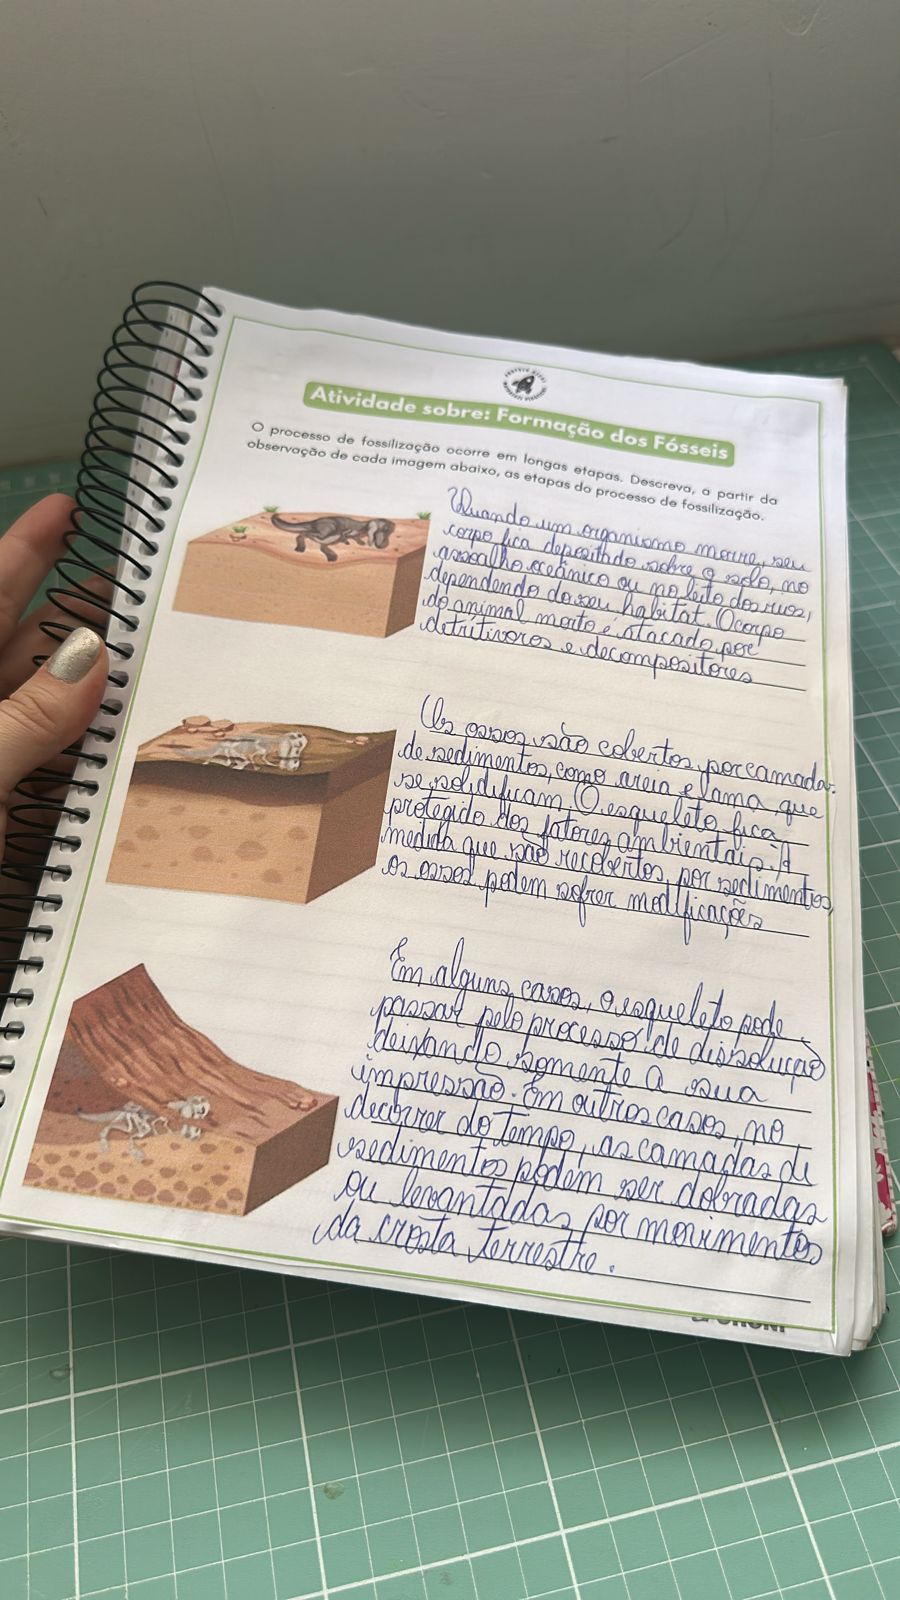 Atividade sobre: Formação dos Fósseis
O processo de fossilização ocorre em longas etapas. Descreva, a partir da
observação de cada imagem abaixo, as etapas do processo de fossilização.
Quando um organismo morre, seu
corpo fica depositado sobre o solo, no
assoalho oceânico ou no leito dos rios,
dependendo do seu habitat. O corpo
do animal morto é atacado por
detritívoros e decompositores
Os ossos são cobertos por camada
de sedimentos, como areia e lama que
se solidificam. O esqueleto fica
protegido dos fatores ambientais. À
medida que são recobertos por sedimentos,
os ossos podem sofrer modificações
Em alguns casos, o esqueleto pode
passar pelo processo de dissolução
deixando somente a sua
impressão. Em outros casos, no
decorrer do tempo, as camadas de
sedimentos podem ser dobradas
ou levantadas por movimentos
da crosta terrestre.